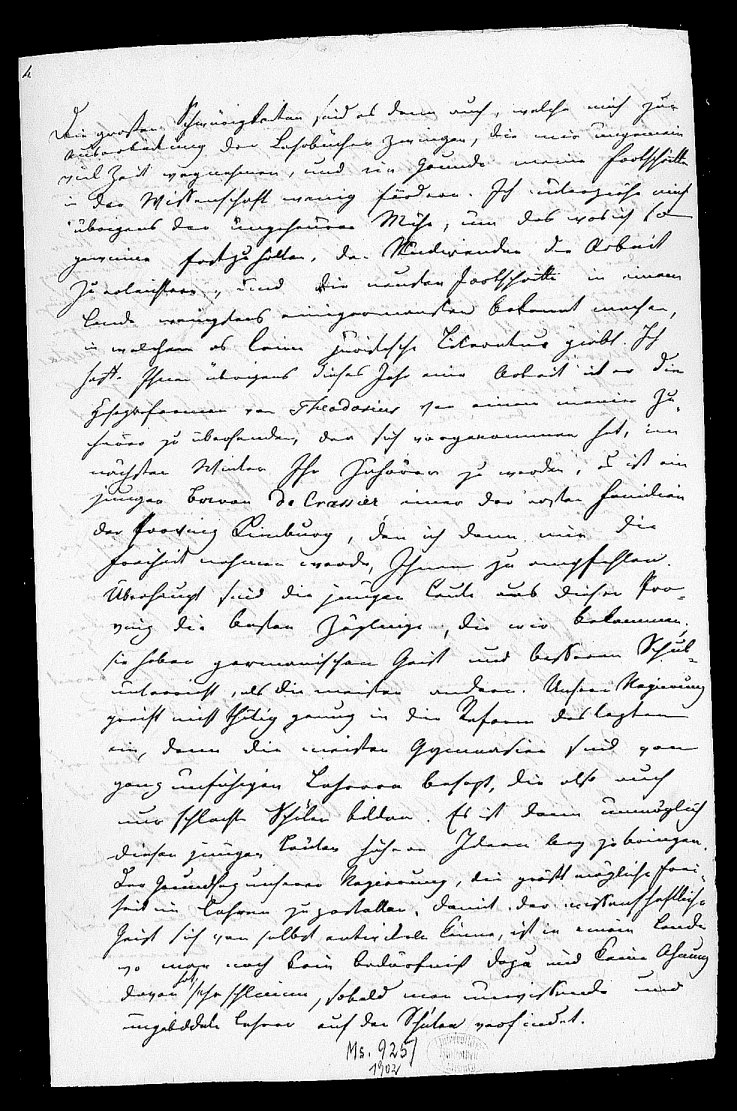 4
Die großen Schwürigkeiten sind es denn auch, welche mich zur
Ausarbeitung der Lehrbücher zwingen, die mir ungemein
viel Zeit wegnehmen, und im Grunde meine Fortschritte
in der Wissenschaft wenig fördern. Ich unterziehe mich
übrigens der ungeheuren Mühe, um das was ich
gewinne fortzuhalten, den Studirenden die Arbeit
zu erleichtern, und die neusten Fortschritte in einem
Lande wenigstens einigermaßen bekannt machen,
in welchem es keine juristische Literatur giebt. Ich
hoffe Ihnen übrigens dieses Jahr eine Arbeit über die
von Theodosius von einem meiner Zu-
hörer zu übersenden, der sich vorgenommen hat, im
nächsten Winter Ihr Zuhörer zu werden; es ist ein
junger Baron de Crassier einer der ersten Familien
der Provinz Limburg, den ich dann mir die
Freiheit nehmen werde, Ihnen zu empfehlen.
Überhaupt sind die jungen Leute aus dieser Pro-
vinz die besten Zöglinge, die wir bekommen;
sie haben germanischen Geist und besseren Schul-
unterricht, als die meisten andern. Unsere Regierung
greift nicht thätig genug in die Reform des letztern
ein, denn die meisten Gymnasien sind von
ganz unfähigen Lehrern besetzt, die also auch
nur schlechte Schüler bilden. Es ist dann unmöglich
diesen jungen Leuten höhere Ideen beyzubringen.
Der Grundsatz unserer Regierung, die größt mögliche Frei-
heit im Lehren zu gestatten, damit der wissenschaftliche
Geist sich von selbst entwickeln könne, ist in einem Lande
wo man noch kein Bedürfniß dazu und keine Ahnung
davon hat sehr schlimm, sobald man unwissende und
ungebildete Lehrer auf den Schulen vorfindet.
Ms. 925/
1902